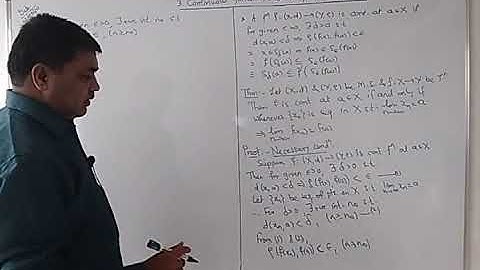 3 Continuous
given ε>0, ∃ +ve int. n₀ s.t
, (n≥n₀)
* A fⁿ f:(X,d)→(Y,ρ) is cont. at a∈X if
for given ε>0, ∃ δ>0 s.t
d(x,a)<δ ⇒ ρ(f(x),f(a))<ε
i.e. x∈S_δ(a) ⇒ f(x)∈S_ε(f(a))
⇒ f(S_δ(a)) ⊆ S_ε(f(a))
⇒ S_δ(a) ⊆ f⁻¹(S_ε(f(a)))
Thm:- Let (X,d) & (Y,ρ) be M.S & f:X→Y be fⁿ
Then f is cont at a∈X if and only if
Whenever {xₙ} is seq. in X s.t lim xₙ=a
⇒ lim f(xₙ)=f(a)
Proof:- Necessary cond.
Suppose f:(X,d)→(Y,ρ) is cont. fⁿ at a∈X
Thus for given ε>0, ∃ δ>0 s.t
d(x,a)<δ ⇒ ρ(f(x),f(a))<ε —(1)
Let {xₙ} be seq. of pts in X s.t lim xₙ=a
∴ For δ>0 ∃ +ve int. n₀ s.t
d(xₙ,a)<δ, (n≥n₀) —(2)
From (1) & (2),
ρ(f(xₙ),f(a))<ε, (n≥n₀)